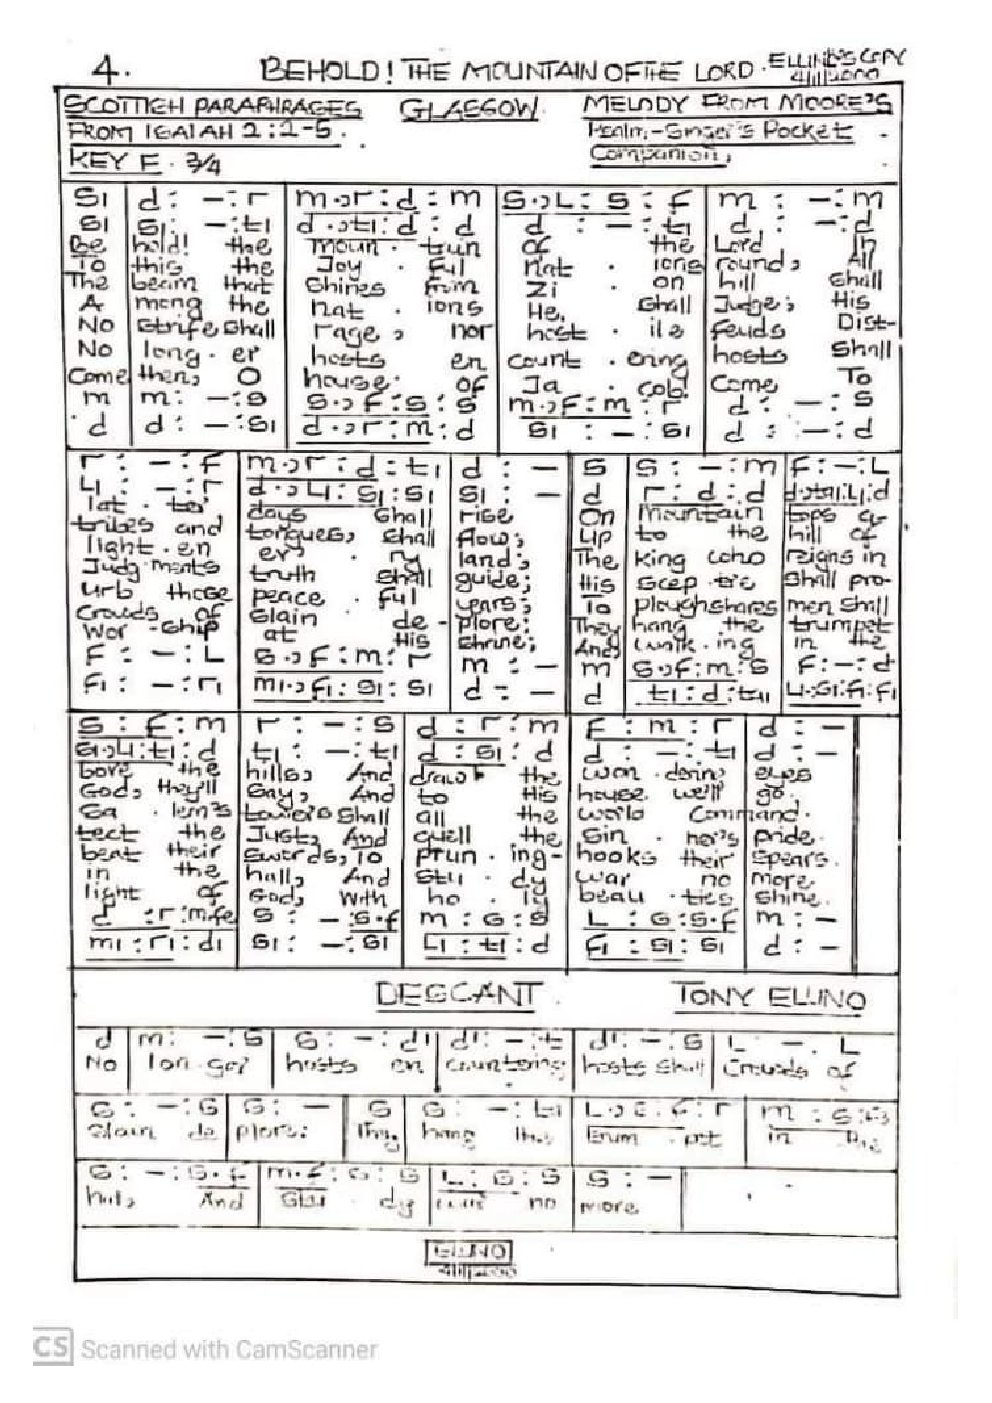 4. BEHOLD! THE MOUNTAIN OF THE LORD. ELLINO'S COPY
4/11/2000
SCOTTISH PARAPHRASES GLASGOW. MELODY FROM MOORE'S
FROM ISAIAH 2:2-5. Psalm-Singer's Pocket
KEY F. 3/4 Companion,
S1 d : - : r m.,r : d : m S.,L : S : f m : - : m
S1 S1 : - : t1 d.,t1 : d : d d : - : t1 d : - : d
Be hold! the moun . tain of the Lord In
To this the Joy . ful nat . ions round, All
The beam that Shines from Zi . on hill Shall
A mong the nat . ions He, Shall Judge; His
No strife shall rage, nor host . ile feuds Dist-
No long . er hosts en count . ering hosts Shall
Come then, O house of Ja . cob! Come To
m m : - : s S.,F : S : S m.,F : m : r d : - : S
d d : - : S1 d.,r : m : d S1 : - : S1 d : - : d
r : - : f m.,r : d : t1 d : - S S : - : m F : - : L
L1 : - : r d.,L1 : S1 : S1 S1 : - d r : d : d
lat . ter days Shall rise On mountain tops a-
tribes and tongues, Shall flow; Up to the hill of
light . en ev . ry land; The King who reigns in
Judg . ments truth Shall guide; His Scep . tre Shall pro-
urb those peace . ful years; To ploughshares men shall
Crowds of Slain de - plore: They hang the trumpet
Wor - ship at His Shrine; And walk . ing in the
F : - : L S.,F : m : r m : - m S.,F : m : S F : - : d
F1 : - : r1 m1.,f1 : S1 : S1 d : - d
S : F : m r : - : S d : r : m F : m : r d : -
S1.,L1 : t1 : d t1 : - : t1 d : S1 : d d : - : t1 d : -
bove the hills, And draw the won . dering eyes
God, they'll Say, And to His house we'll go.
Sa . lem's towers Shall all the world Command.
tect the Just, And quell the Sin . ner's pride.
beat their Swords, To prun . ing- hooks their Spears.
in the hall, And Stu . dy war no more.
light of God, With ho . ly beau . ties Shine.
d : r : m.fe S : - : S.f m : S : S L : S : S.F m : -
m1 : r1 : d1 S1 : - : S1 L1 : t1 : d F1 : S1 : S1 d : -
DESCANT. TONY ELLINO
d m : - : S S : - : d' d' : - : t d' : - : S L - . L
No lon . ger hosts en countering hosts Shall Crowds of
S : - : S S : - S S : - : m : S : S
Slain de plore: They hang the trum . pet in the
S : - : S.f m.f : S : S L : S : S S : -
hall, And Stu . dy war no more
ELLINO
4/11/2000
CS Scanned with CamScanner